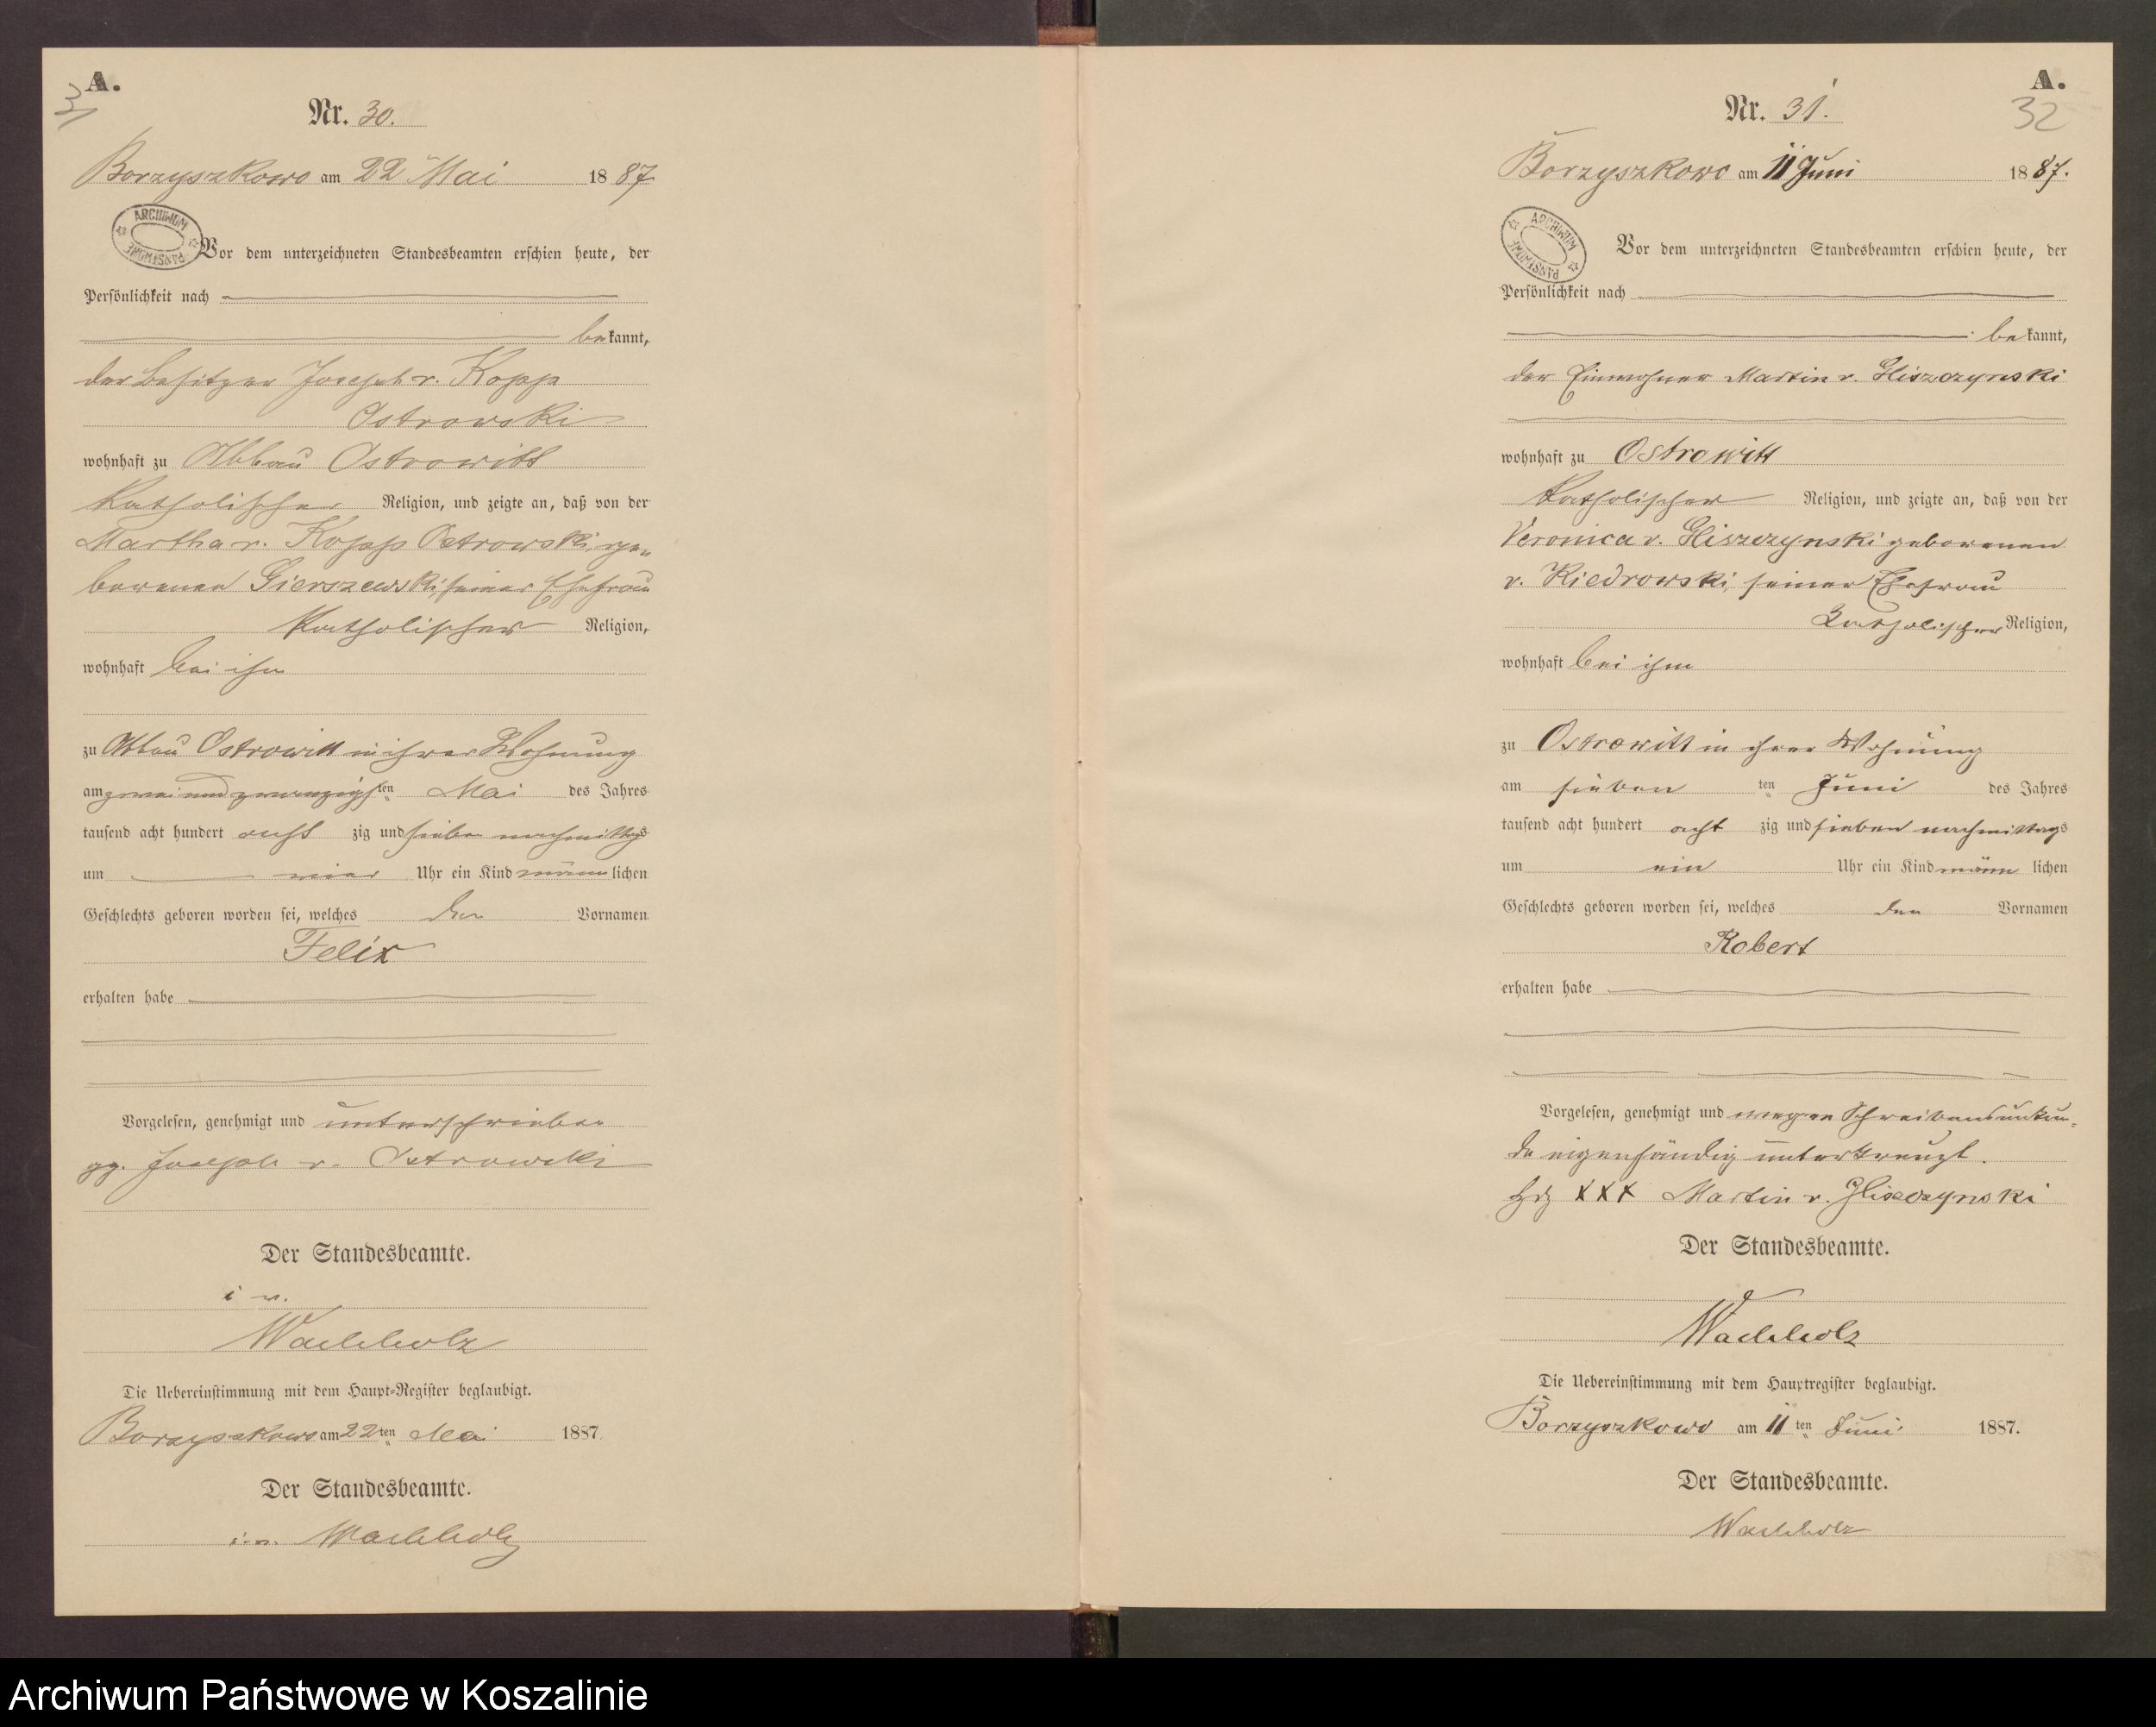 A.
31
Nr. 30.
Borzyszkowo am 22 Mai 1887
ARCHIWUM PAŃSTWOWE
Vor dem unterzeichneten Standesbeamten erschien heute, der
Persönlichkeit nach
bekannt,
der Besitzer Joseph v. Kopp
Ostrowski
wohnhaft zu Abbau Ostrowitt
katholischer Religion, und zeigte an, daß von der
Martha v. Kopp Ostrowski, ge-
borenen Gierszewski, seiner Ehefrau
katholischer Religion,
wohnhaft bei ihm
zu Abbau Ostrowitt in ihrer Wohnung
am zwei und zwanzigsten Mai des Jahres
tausend acht hundert acht zig und sieben nachmittags
um vier Uhr ein Kind männlichen
Geschlechts geboren worden sei, welches den Vornamen
Felix
erhalten habe
Vorgelesen, genehmigt und unterschrieben
gez. Joseph v. Ostrowski
Der Standesbeamte.
i. v.
Wachholz
Die Uebereinstimmung mit dem Haupt-Register beglaubigt.
Borzyszkowo am 22ten Mai 1887.
Der Standesbeamte.
i. v. Wachholz
A.
32
Nr. 31.
Borzyszkowo am 11 Juni 1887.
ARCHIWUM PAŃSTWOWE
Vor dem unterzeichneten Standesbeamten erschien heute, der
Persönlichkeit nach
bekannt,
der Einwohner Martin v. Gliszczynski
wohnhaft zu Ostrowitt
katholischer Religion, und zeigte an, daß von der
Veronica v. Gliszczynski geborenen
v. Kiedrowski, seiner Ehefrau
katholischer Religion,
wohnhaft bei ihm
zu Ostrowitt in ihrer Wohnung
am sieben ten Juni des Jahres
tausend acht hundert acht zig und sieben nachmittags
um ein Uhr ein Kind männlichen
Geschlechts geboren worden sei, welches den Vornamen
Robert
erhalten habe
Vorgelesen, genehmigt und wegen Schreibensunkun-
de eigenhändig unterkreuzt.
Hdz XXX Martin v. Gliszczynski
Der Standesbeamte.
Wachholz
Die Uebereinstimmung mit dem Hauptregister beglaubigt.
Borzyszkowo am 11ten Juni 1887.
Der Standesbeamte.
Wachholz
Archiwum Państwowe w Koszalinie